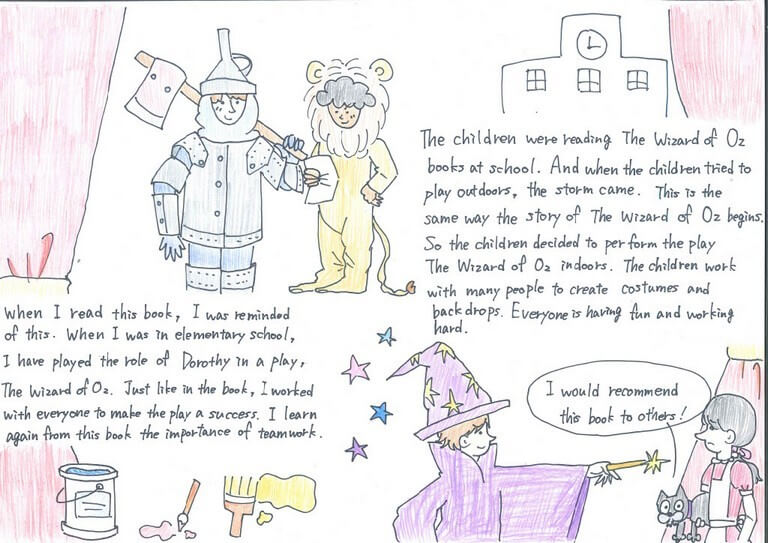 The children were reading The Wizard of Oz
books at school. And when the children tried to
play outdoors, the storm came. This is the
same way the story of The Wizard of Oz begins.
So the children decided to perform the play
The Wizard of Oz indoors. The children work
with many people to create costumes and
backdrops. Everyone is having fun and working
hard.
When I read this book, I was reminded
of this. When I was in elementary school,
I have played the role of Dorothy in a play,
The Wizard of Oz. Just like in the book, I worked
with everyone to make the play a success. I learn
again from this book the importance of teamwork.
I would recommend
this book to others!